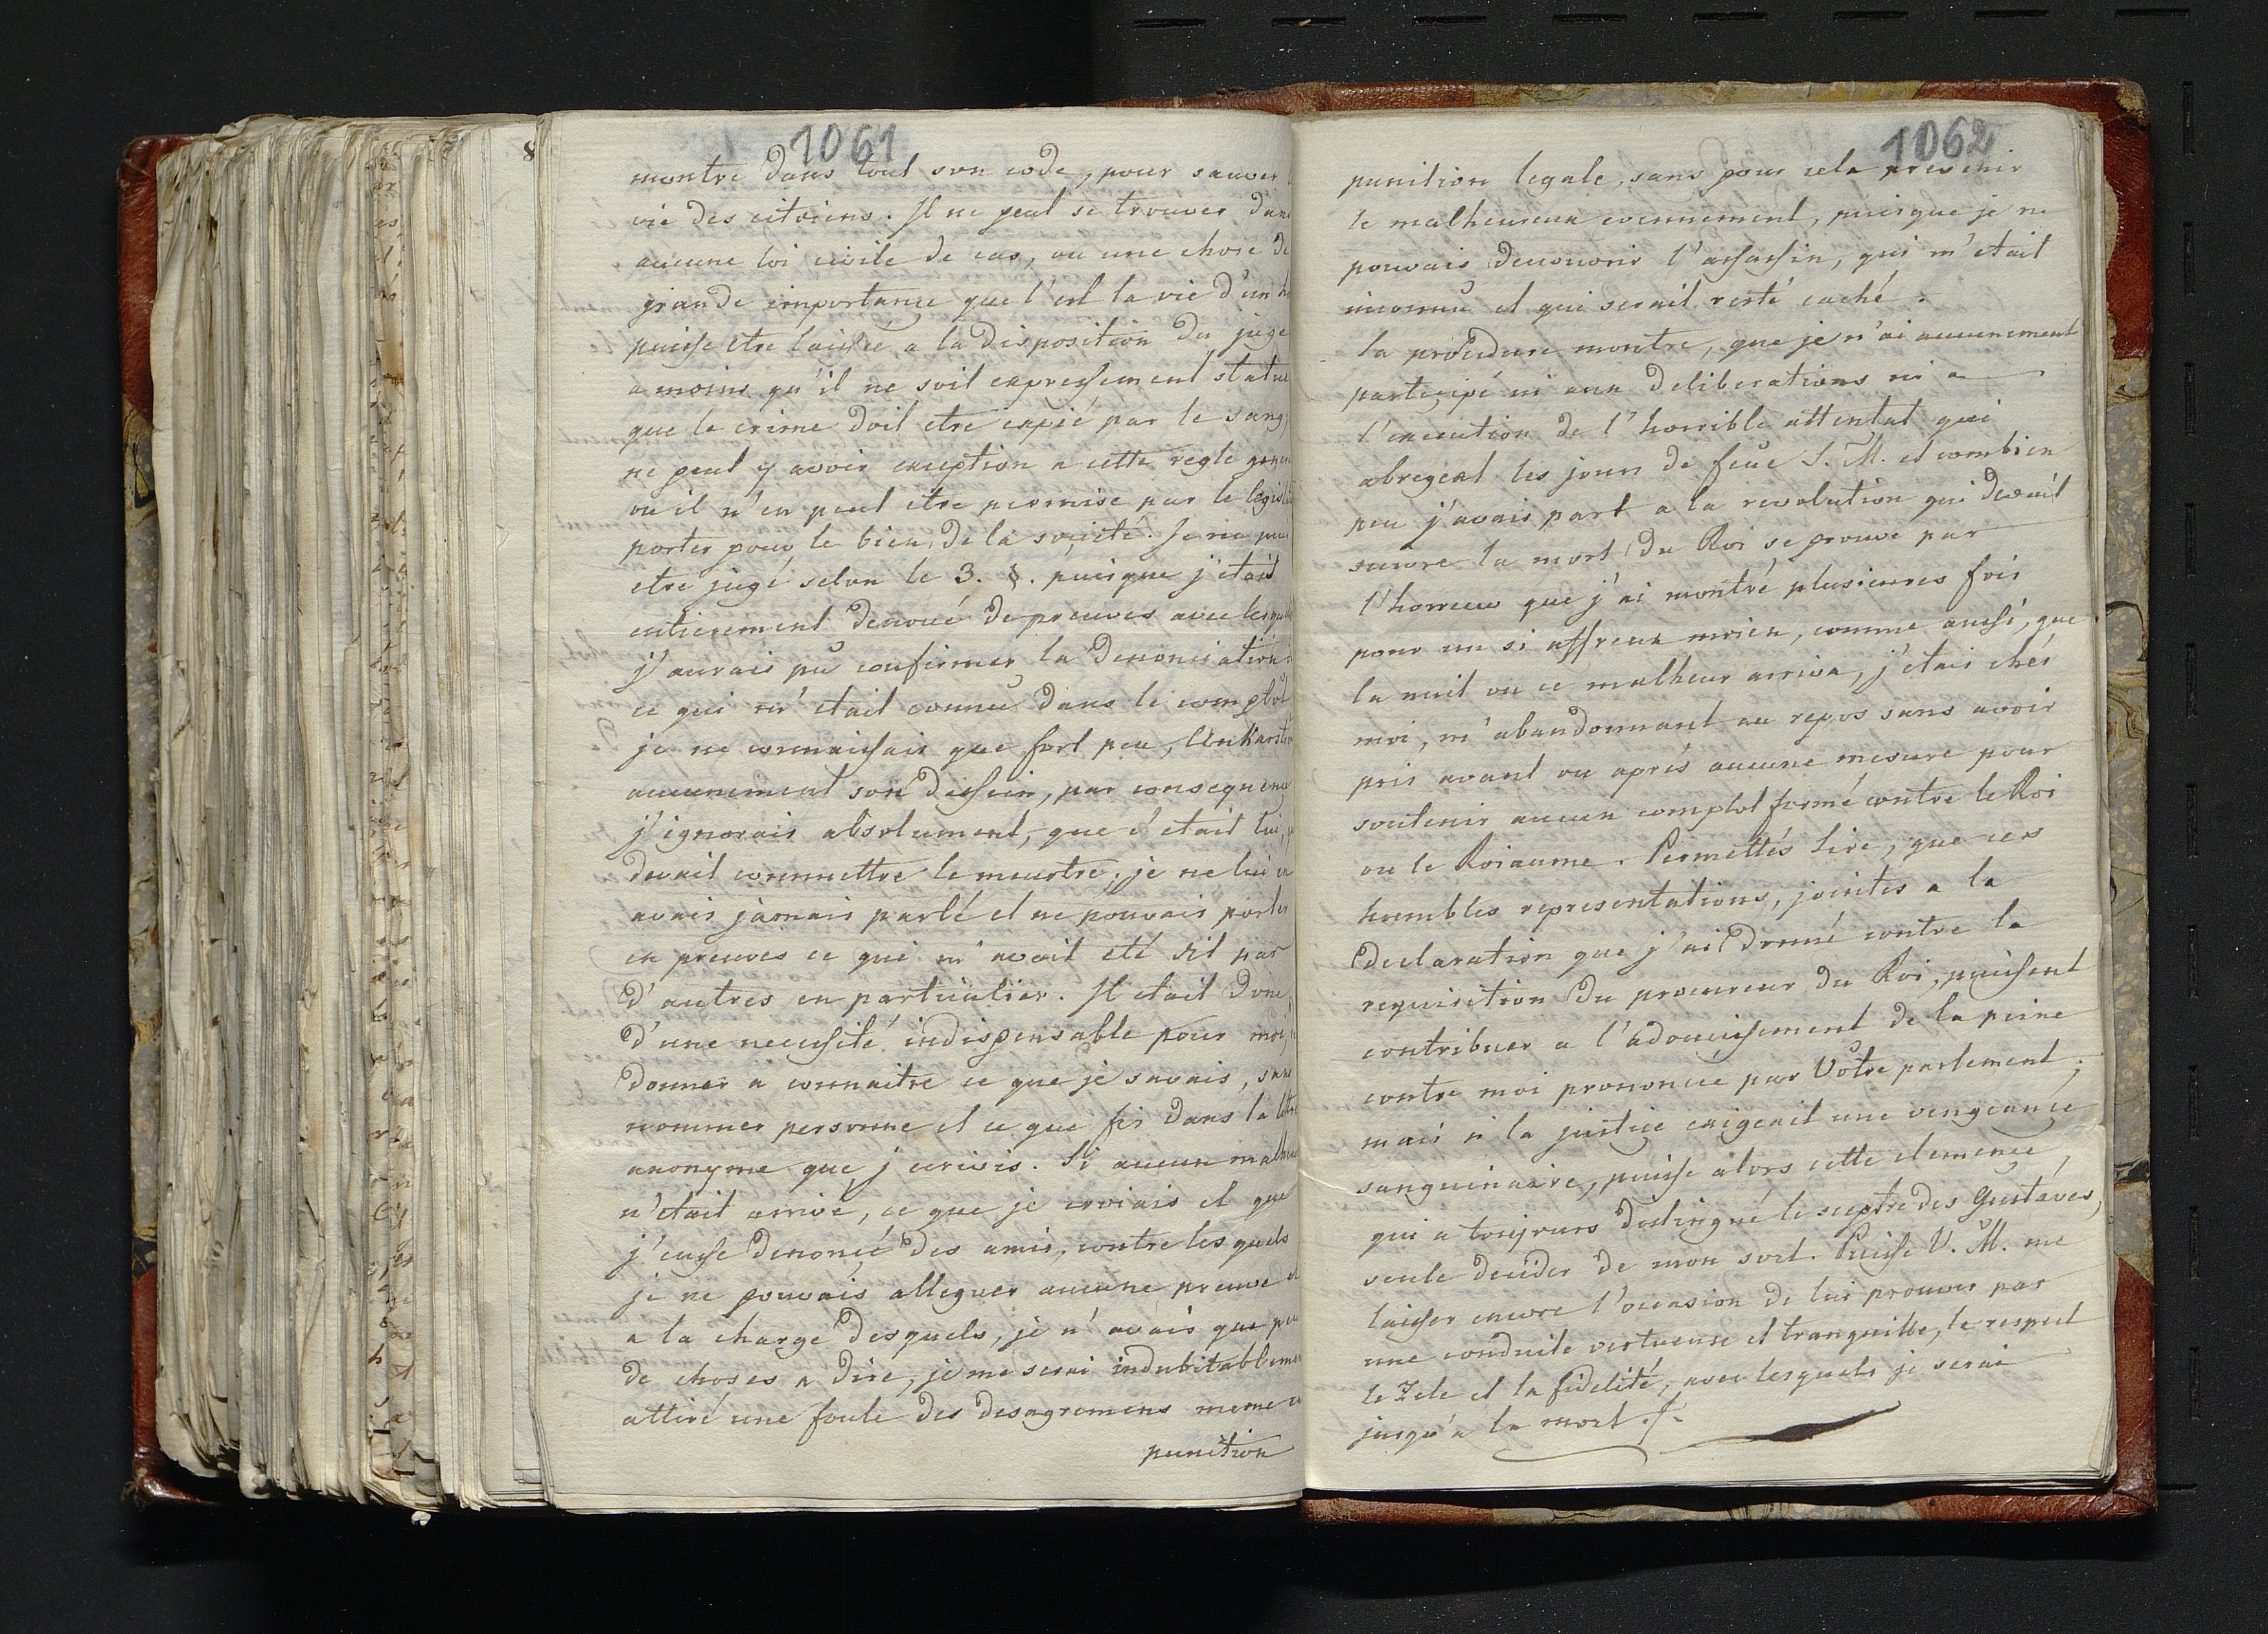 1061
montre dans tout son code, pour sauver
vie des citoiens. Il ne peut se trouver dans
aucune loi civile de cas, ou une chose de
grande importance que l'est la vie d'un
puisse etre laissée a la disposition du juge
a moins qu'il ne soit expressement statué
que le crime doit etre expié par le sang,
ne peut y avoir exception a cette regle
ou il n'en peut etre permise par le
porter pour le bien de la société. Je ne
etre jugé selon le 3. §. puisque j'etait
entierement denoué de preuves avec
j'aurais pû confirmer la denonciation
ce qui m'etait connu dans le complot
je ne connaissais que fort peu,
aucunement son dessein, par consequence
j'ignorais absolument, que c'etait lui,
devait commettre le meurtre, je ne lui en
avais jamais parlé et ne pouvais porter
en preuves ce qui m'avoit eté dit par
d'autres en particulier. Il etait donc
d'une necessité indispensable pour moi,
donner a connaitre ce que je savais, sans
nommer personne et ce que fis dans la
anonyme que j'ecrivis. Si aucun
n'etait arrivé, ce que je croiais et que
j'eusse denoncé des amis, contre les quels
je ne pouvais alleguer aucune preuve et
a la charge desquels, je n'avais que peu
de choses a dire, je me serai
attiré une foule des desagremens meme
punition
1062
punition legale, sans pour cela prevenir
le malheureux evennement, puisque je ne
pouvais decouvrir l'assassin, qui m'etait
inconnu et qui serait resté caché.
la procedure montre, que je n'ai aucunement
participé ni aux deliberations ni a
l'execution de l'horrible attentat qui
abregeat les jours de feue S. M. et combien
peu j'avais part a la revolution qui devait
suivre la mort du Roi se prouve par
l'horreur que j'ai montré plusieures fois
pour un si affreux moien, comme aussi, que
la nuit ou ce malheur arriva, j'etais chés
moi, m'abandonnant au repos sans avoir
pris avant ou aprés aucune mesure pour
soutenir aucun complot formé contre le Roi
ou le Roiaume. Permettés Sire, que ces
humbles representations, jointes a la
declaration que j'ai donné contre la
requisition du procureur du Roi, puissent
contribuer a l'adoucissement de la peine
contre moi prononcée par Votre parlement;
mais si la justice exigeait une vengeance
sanguinaire, puisse alors cette clemence,
qui a toujours distingué le sceptre des Gustaves,
seule decider de mon sort. Puisse V. M. me
laisser encore l'occasion de lui prouver par
une conduite vertueuse et tranquille, le respect
le Zele et la fidelité, avec lesquels je serai
jusqu'a la mort.